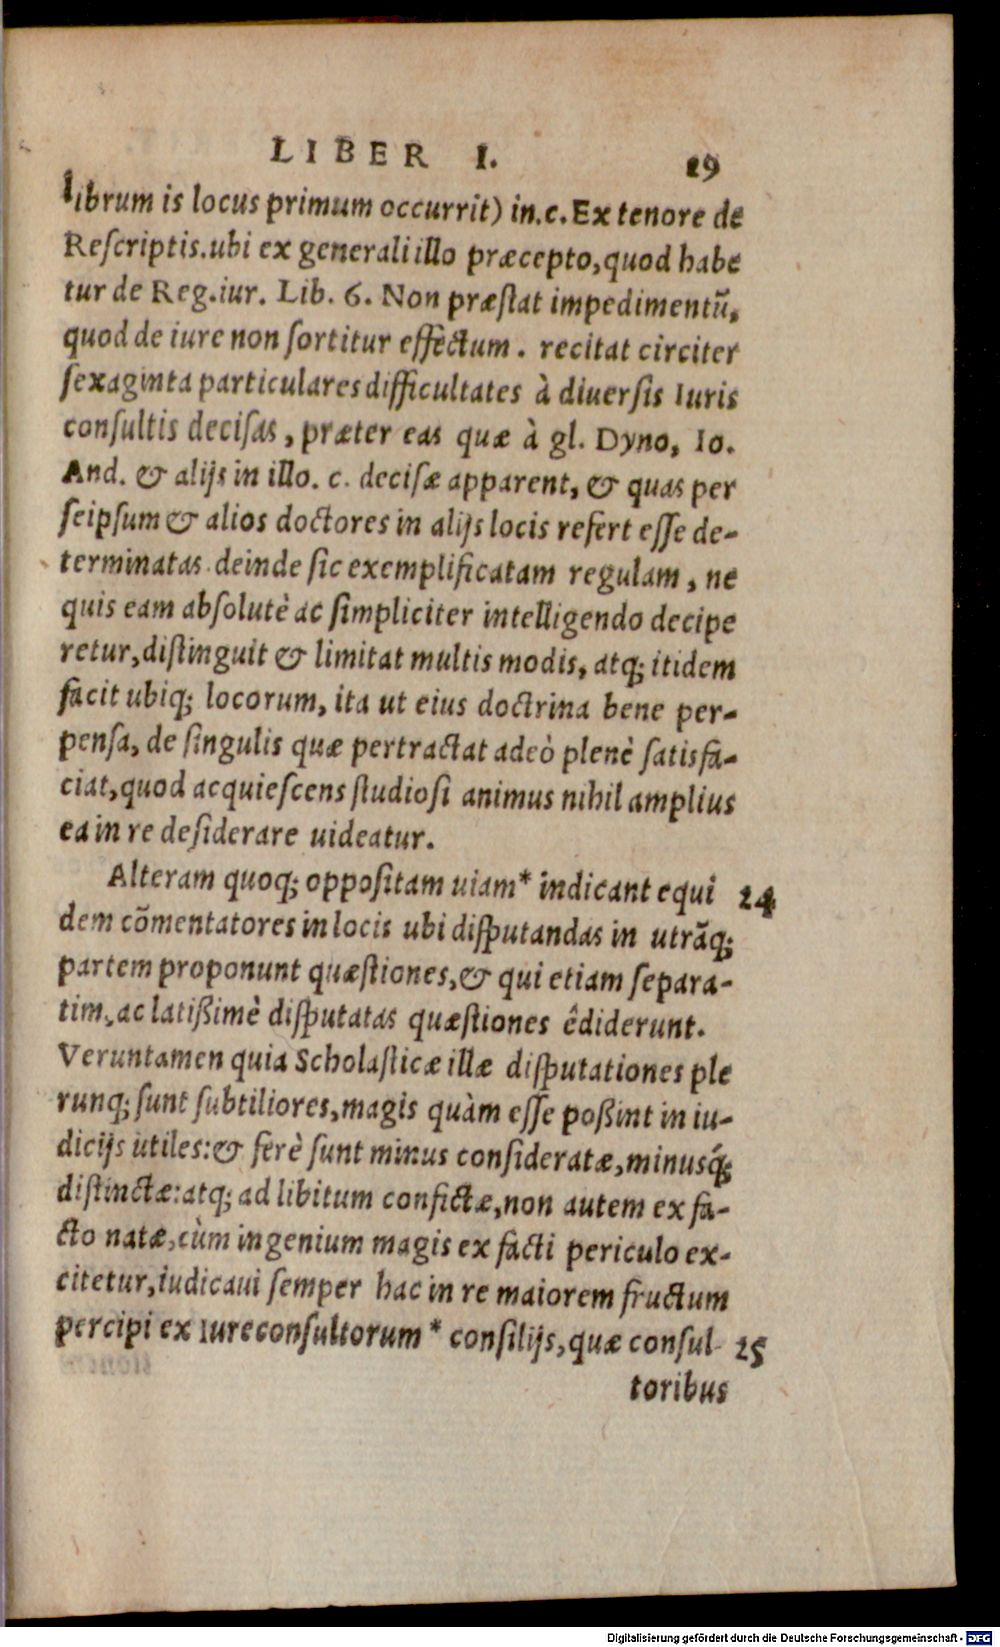 LIBER I. 19
librum is locus primum occurrit) in.c. Ex tenore de
Reſcriptis.ubi ex generali illo præcepto,quod habe
tur de Reg.iur. Lib. 6. Non præſtat impedimentũ,
quod de iure non ſortitur effectum. recitat circiter
ſexaginta particulares difficultates à diuerſis Iuris
conſultis deciſas, præter eas quæ à gl. Dyno, Io.
And. & alijs in illo. c. deciſæ apparent, & quas per
ſeipſum & alios doctores in alijs locis refert eſſe de-
terminatas. deinde ſic exemplificatam regulam, ne
quis eam abſolutè ac ſimpliciter intelligendo decipe
retur,diſtinguit & limitat multis modis, atq; itidem
facit ubiq; locorum, ita ut eius doctrina bene per-
penſa, de ſingulis quæ pertractat adeò plenè ſatisfa-
ciat,quod acquieſcens ſtudioſi animus nihil amplius
ea in re deſiderare uideatur.
Alteram quoq; oppoſitam uiam* indicant equi 24
dem cõmentatores in locis ubi diſputandas in utrãq;
partem proponunt quæſtiones,& qui etiam ſepara-
tim, ac latißimè diſputatas quæſtiones êdiderunt.
Veruntamen quia Scholaſticæ illæ diſputationes ple
runq; ſunt ſubtiliores,magis quàm eſſe poßint in iu-
dicijs utiles:& ferè ſunt minus conſideratæ,minusq́;
diſtinctæ:atq; ad libitum confictæ,non autem ex fa-
cto natæ,cùm ingenium magis ex facti periculo ex-
citetur,iudicaui ſemper hac in re maiorem fructum
percipi ex Iureconſultorum* conſilijs,quæ conſul- 25
toribus
Digitalisierung gefördert durch die Deutsche Forschungsgemeinschaft - DFG